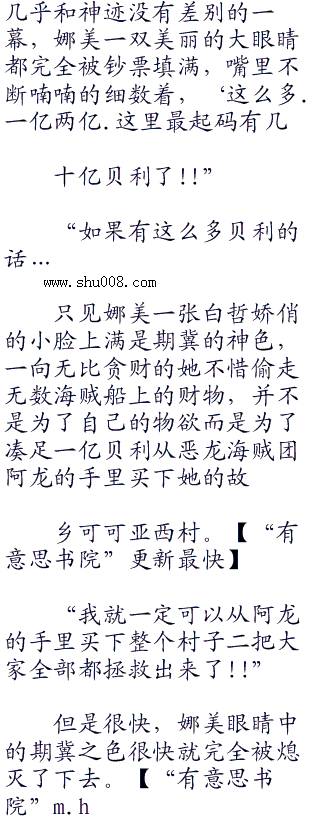 几乎和神迹没有差别的一
幕，娜美一双美丽的大眼睛
都完全被钞票填满，嘴里不
断喃喃的细数着，‘这么多.
一亿两亿.这里最起码有几
十亿贝利了!!”
“如果有这么多贝利的
话…
www.shu008.com
只见娜美一张白哲娇俏
的小脸上满是期冀的神色，
一向无比贪财的她不惜偷走
无数海贼船上的财物，并不
是为了自己的物欲而是为了
凑足一亿贝利从恶龙海贼团
阿龙的手里买下她的故
乡可可亚西村。【“有
意思书院”更新最快】
“我就一定可以从阿龙
的手里买下整个村子二把大
家全部都拯救出来了!!”
但是很快，娜美眼睛中
的期冀之色很快就完全被熄
灭了下去。【“有意思书
院”m.h